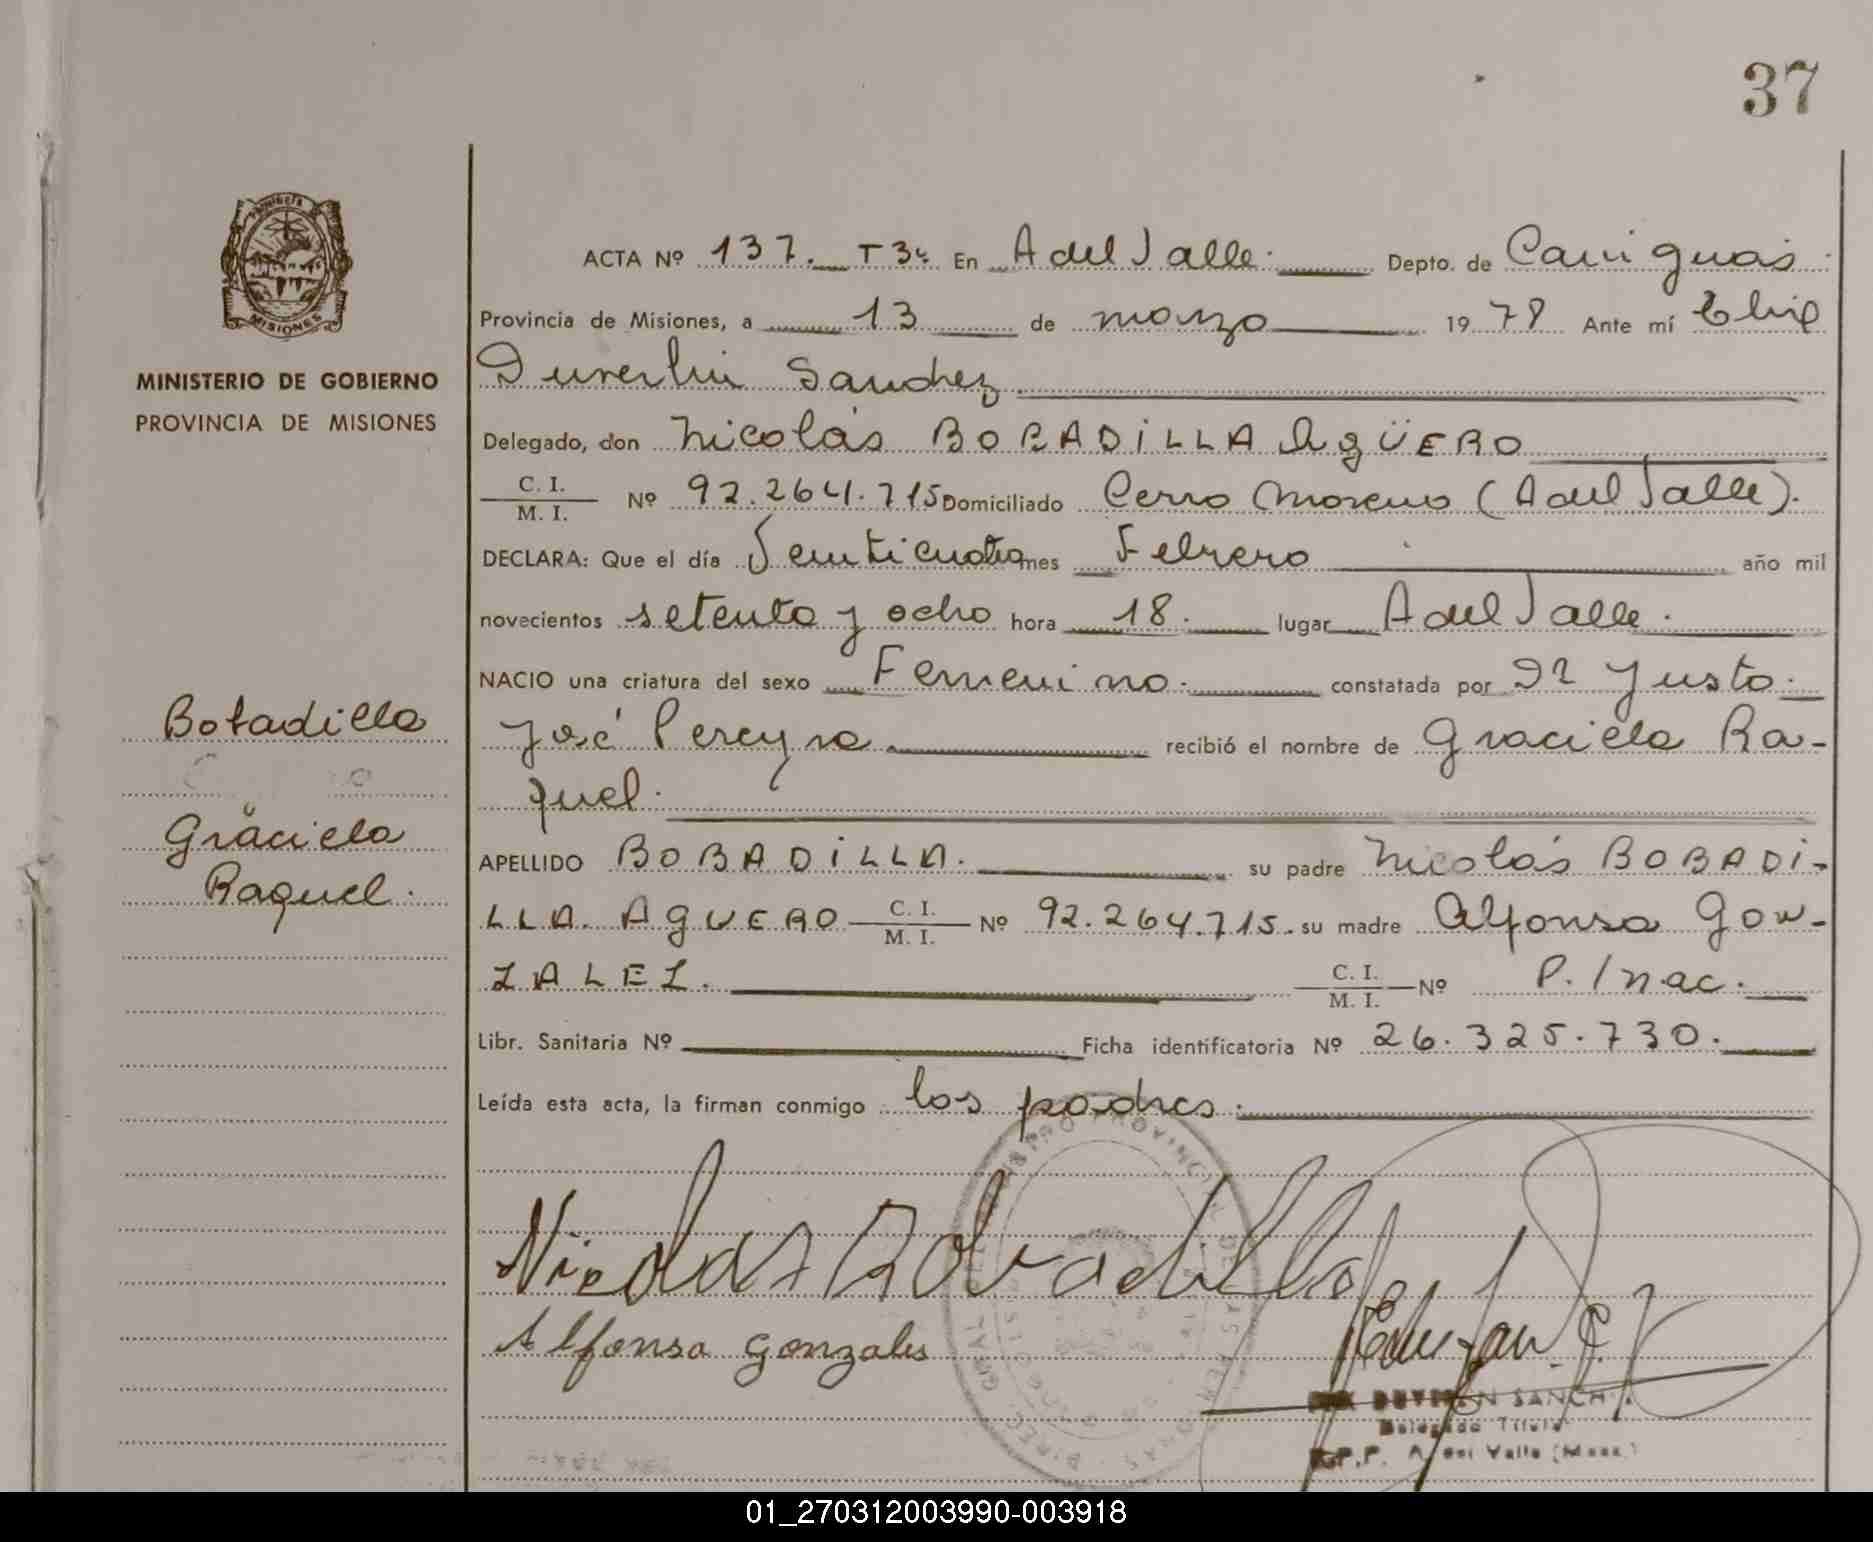 37
ACTA Nº 137. T 3º En A del Valle. Depto. de Cainguás
Provincia de Misiones, a 13 de marzo 1978 Ante mí
Sanchez
MINISTERIO DE GOBIERNO
PROVINCIA DE MISIONES
Delegado, don Nicolás BOBADILLA AgÜERO
C. I. / M. I. Nº 92.264.715 Domiciliado Cerro Moreno (A del Valle).
DECLARA: Que el día Veinticuatro mes Febrero año mil
novecientos setenta y ocho hora 18. lugar A del Valle.
NACIO una criatura del sexo Femenino. constatada por Dr Justo
José Pereyra recibió el nombre de Graciela Ra-
quel.
APELLIDO BOBADILLA. su padre Nicolás BOBADI-
LLA. AgUERO C. I. / M. I. Nº 92.264.715. su madre Alfonsa Gon-
ZALEZ. C. I. / M. I. Nº P. Inac.
Libr. Sanitaria Nº Ficha identificatoria Nº 26.325.730.
Leída esta acta, la firman conmigo los padres.
Bobadilla
Graciela
Raquel.
MISIONES
Nicolas Bobadilla
Alfonsa Gonzales
SANCH
Delegado Titular
Valle
01_270312003990-003918